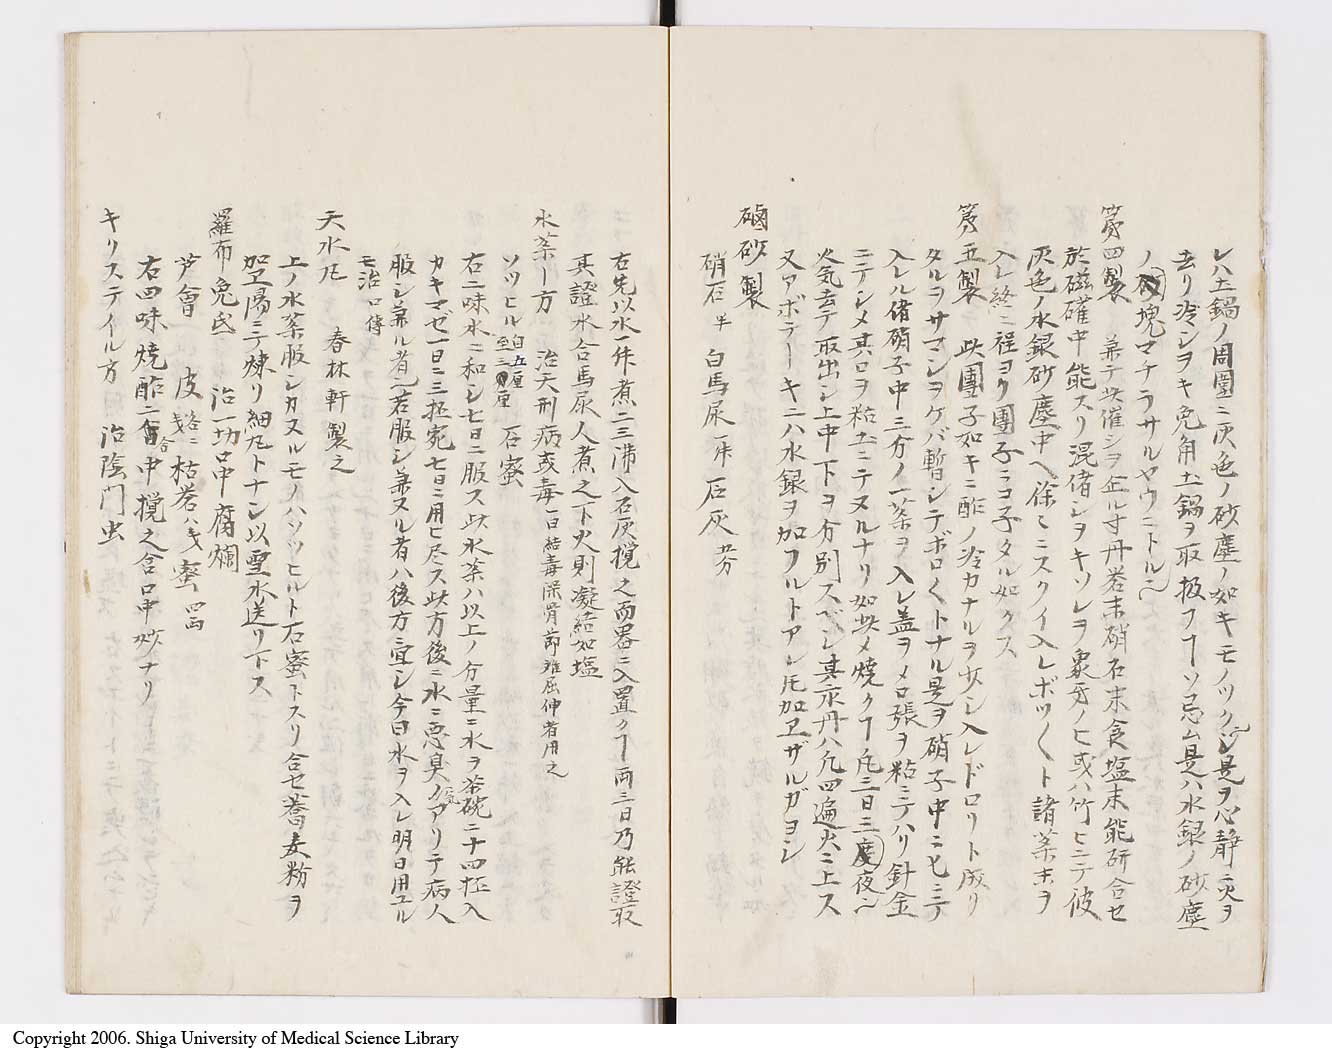 レハ土鍋ノ周圍ニ灰色ノ砂塵ノ如キモノツクヘシ是ヲ心静ニ灰ヲ
去リ冷シヲキ兎角土鍋ヲ取扱フヿソ忌ム是ハ水銀ノ砂塵
ノ塊マチラサルヤウニトル
第四製 兼テ此催シヲ企ル寸丹礬末硝石末食塩末能研合セ
於磁確中能スリ混偖シヲキソレヲ象牙ノヒ或ハ竹ヒニテ彼
灰色ノ水銀砂塵中ヘ徐々ニスクイ入レボツ〱ト諸薬末ヲ
入レ終ニ程ヨク團子ニコ子タル如クス
第五製 此團子如キニ酢ノ冷カナルヲ少シ入レドロリト成リ
タルヲサマシヲケバ暫シテボロ〱トナル是ヲ硝子中ニヒニテ
入レル偖硝子中三分ノ一薬ヲ入レ蓋ヲメ口張ヲ粘ニテハリ針金
ニテシメ其口ヲ粘土ニテヌルナリ如此メ焼クヿ凡三日三夜
火気去テ取出シ上中下ヲ分別スベシ真赤丹ハ凡四遍火ニ上ス
又アボテーキニハ水銀ヲ加フルトアレ𪜈加ヱザルガヨシ
磠砂製
硝石半 白馬尿一体石灰
右先以水一体煮二三沸入石灰攪之而器ニ入置クヿ両三日乃能證取
其證水合馬尿人煮之下火則凝結如塩
水薬一方 治天刑病或毒一曰結毒深骨節難屈伸者用之
ソツヒル 自五厘至三厘 石蜜
右二味水ニ和シ七日ニ服ス此水薬ハ以上ノ分量ニ水ヲ茶碗ニ十四盃入
カキマゼ一日ニ三盃宛七日ニ用ヒ尽ス此方後ニ水ニ悪臭気アリテ病人
服シ兼ル者若服シ兼ヌル者ハ後方宜シ今日水ヲ入レ明日用ユル
モ治口傳
天水丸 春林軒製之
上ノ水薬服シカヌルモノハソツヒルト石蜜トスリ合セ蕎麦粉ヲ
加ヱ湯ニテ煉リ細丸トナシ以聖水送リ下ス
羅布免氐 治一切口中腐爛
芦會 皮 枯礬 蜜
右四味焼酢ニ合 中攪之含口中妙ナリ
キリステイル方 治陰門虫
Copyright 2006. Shiga University of Medical Science Library